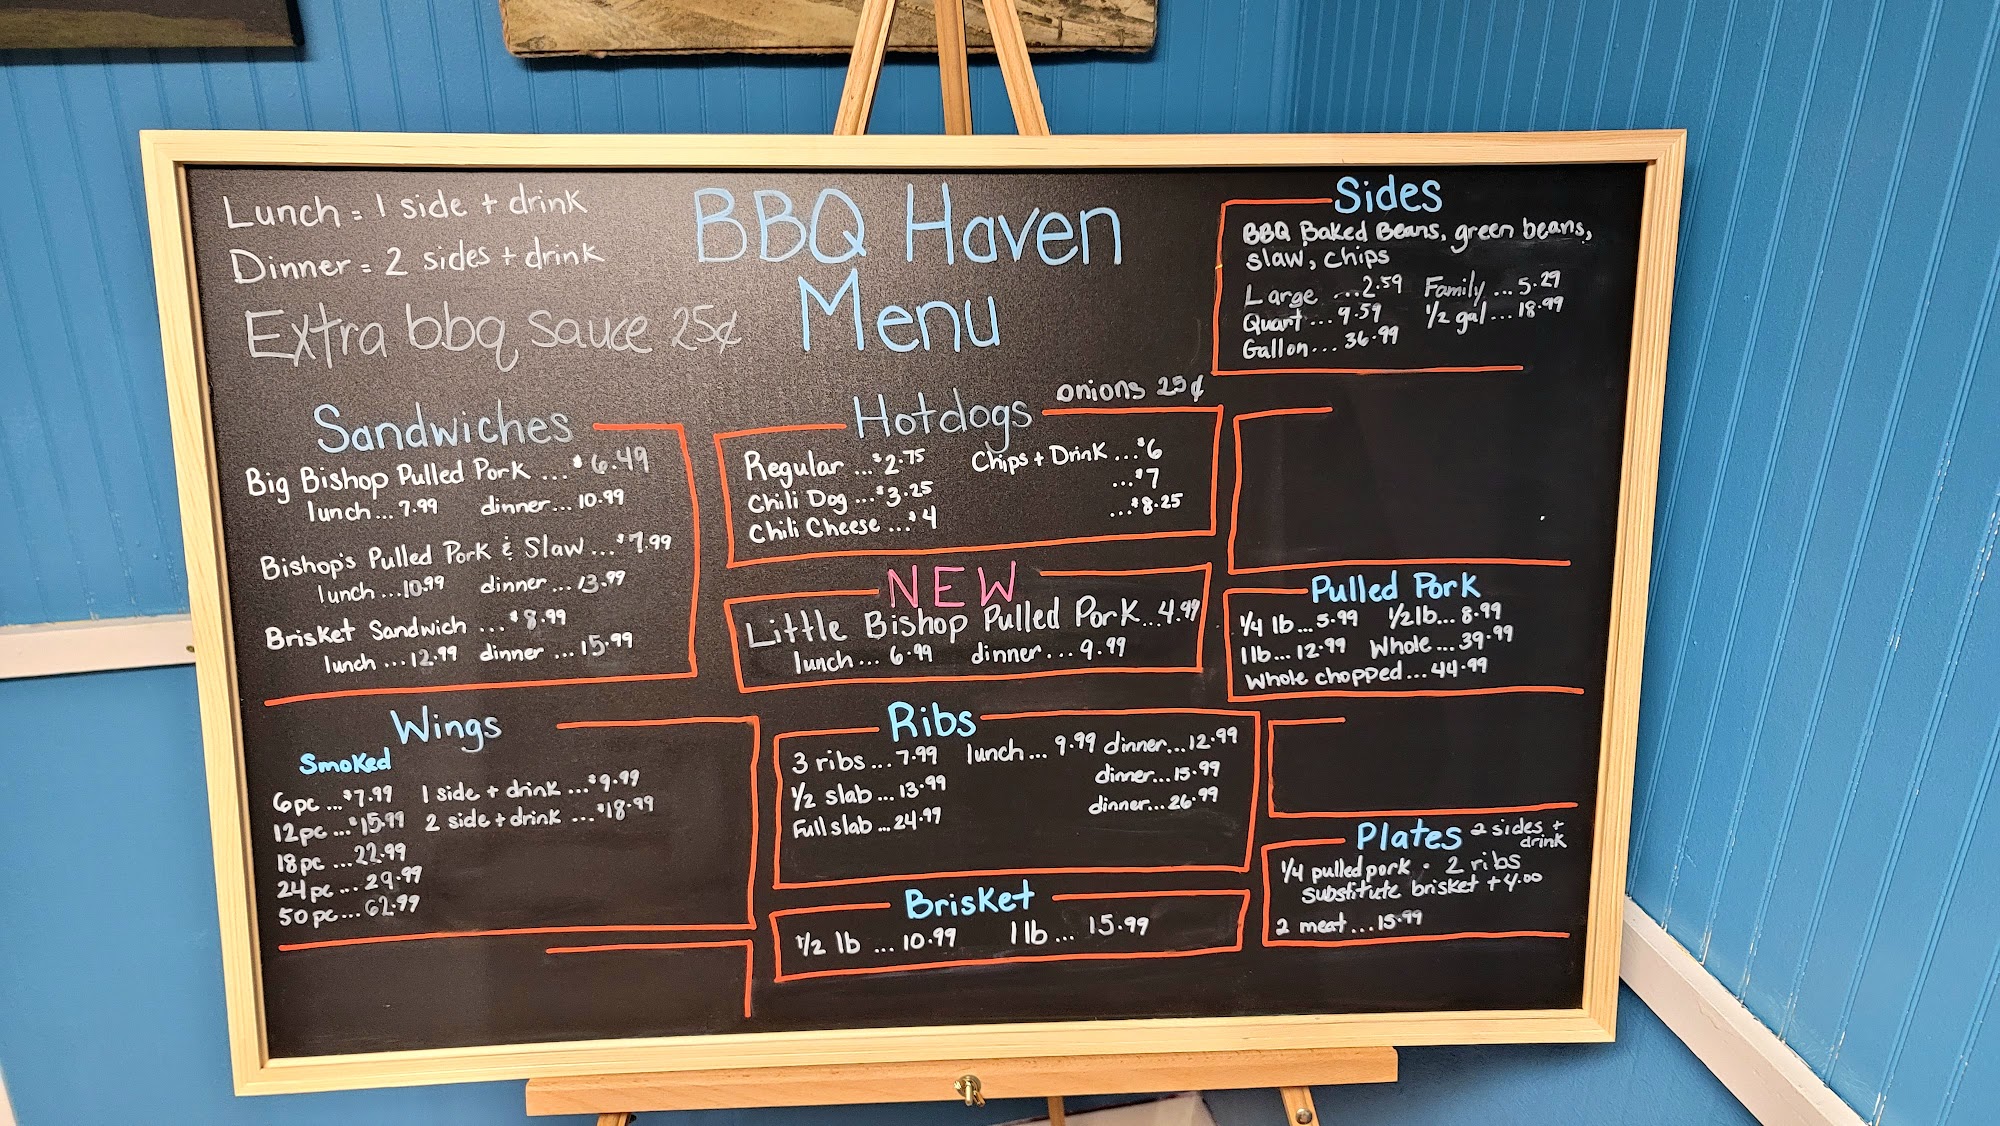 Lunch = 1 side + drink
Dinner = 2 sides + drink
Extra bbq sauce 25¢
BBQ Haven
Menu
Sides
BBQ Baked Beans, green beans,
slaw, chips
Large ...2.59 Family ...5.29
Quart ...9.59 1/2 gal...18.99
Gallon...36.99
Sandwiches
Big Bishop Pulled Pork ...$6.49
lunch...7.99 dinner...10.99
Bishop's Pulled Pork & Slaw ...$7.99
lunch...10.99 dinner...13.99
Brisket Sandwich ...$8.99
lunch...12.99 dinner...15.99
Hotdogs
onions 25¢
Regular ...$2.75 Chips + Drink ...$6
Chili Dog ...$3.25 ...$7
Chili Cheese ...$4 ...$8.25
NEW
Little Bishop Pulled Pork...4.99
lunch...6.99 dinner...9.99
Pulled Pork
1/4 lb...5.99 1/2 lb...8.99
1 lb...12.99 Whole...39.99
Whole chopped...44.99
Wings
Smoked
6pc ...$7.99 1 side + drink ...$9.99
12pc ...$15.99 2 side + drink ...$18.99
18pc ...22.99
24pc ...29.99
50pc...62.99
Ribs
3 ribs ...7.99 lunch...9.99 dinner...12.99
1/2 slab...13.99 dinner...15.99
Full slab...24.99 dinner...26.99
Brisket
1/2 lb ...10.99 1 lb...15.99
Plates 2 sides +
drink
1/4 pulled pork · 2 ribs
substitute brisket +4.00
2 meat...15.99